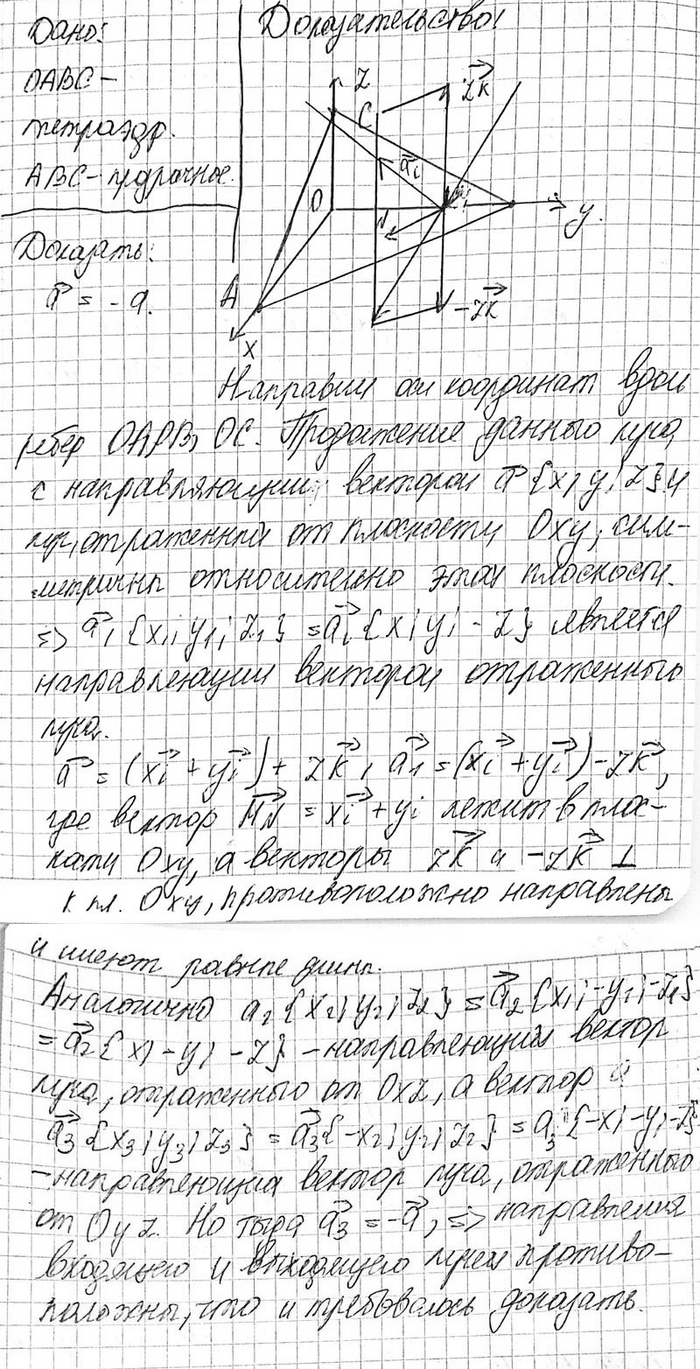 Дано:
OABC –
тетраэдр.
ABC – прозрачное.
Доказать:
a⃗ = -a.
Доказательство!
z
zk⃗
C
a⃗₁
O
N
y.
A
-zk⃗
x
Направим оси координат вдоль
ребер OA, OB, OC. Продолжение данного луча
с направляющим вектором a⃗ {x; y; z} и
луч, отраженный от плоскости Oxy, сим-
метричны относительно этой плоскости.
=> a⃗₁ {x₁; y₁; z₁} = a⃗₁ {x; y; -z} является
направляющим вектором отраженного
луча.
a⃗ = (xi⃗ + yj⃗) + zk⃗, a⃗₁ = (xi⃗ + yj⃗) - zk⃗,
где вектор MN⃗ = xi⃗ + yj лежит в плос-
кости Oxy, а векторы zk⃗ и -zk⃗ ⊥
к пл. Oxy, противоположно направлены
и имеют равные длины.
Аналогично a₂ {x₂; y₂; z₂} = a⃗₂ {x₁; -y₁; -z₁}
= a⃗₂ {x; -y; -z} – направляющий вектор
луча, отраженного от Oxz, а вектор
a⃗₃ {x₃; y₃; z₃} = a⃗₃ {-x₂; y₂; z₂} = a₃ {-x; -y; -z}
– направляющий вектор луча, отраженного
от Oyz. Но тогда a⃗₃ = -a⃗, => направления
входящего и выходящего лучей противо-
положны, что и требовалось доказать.